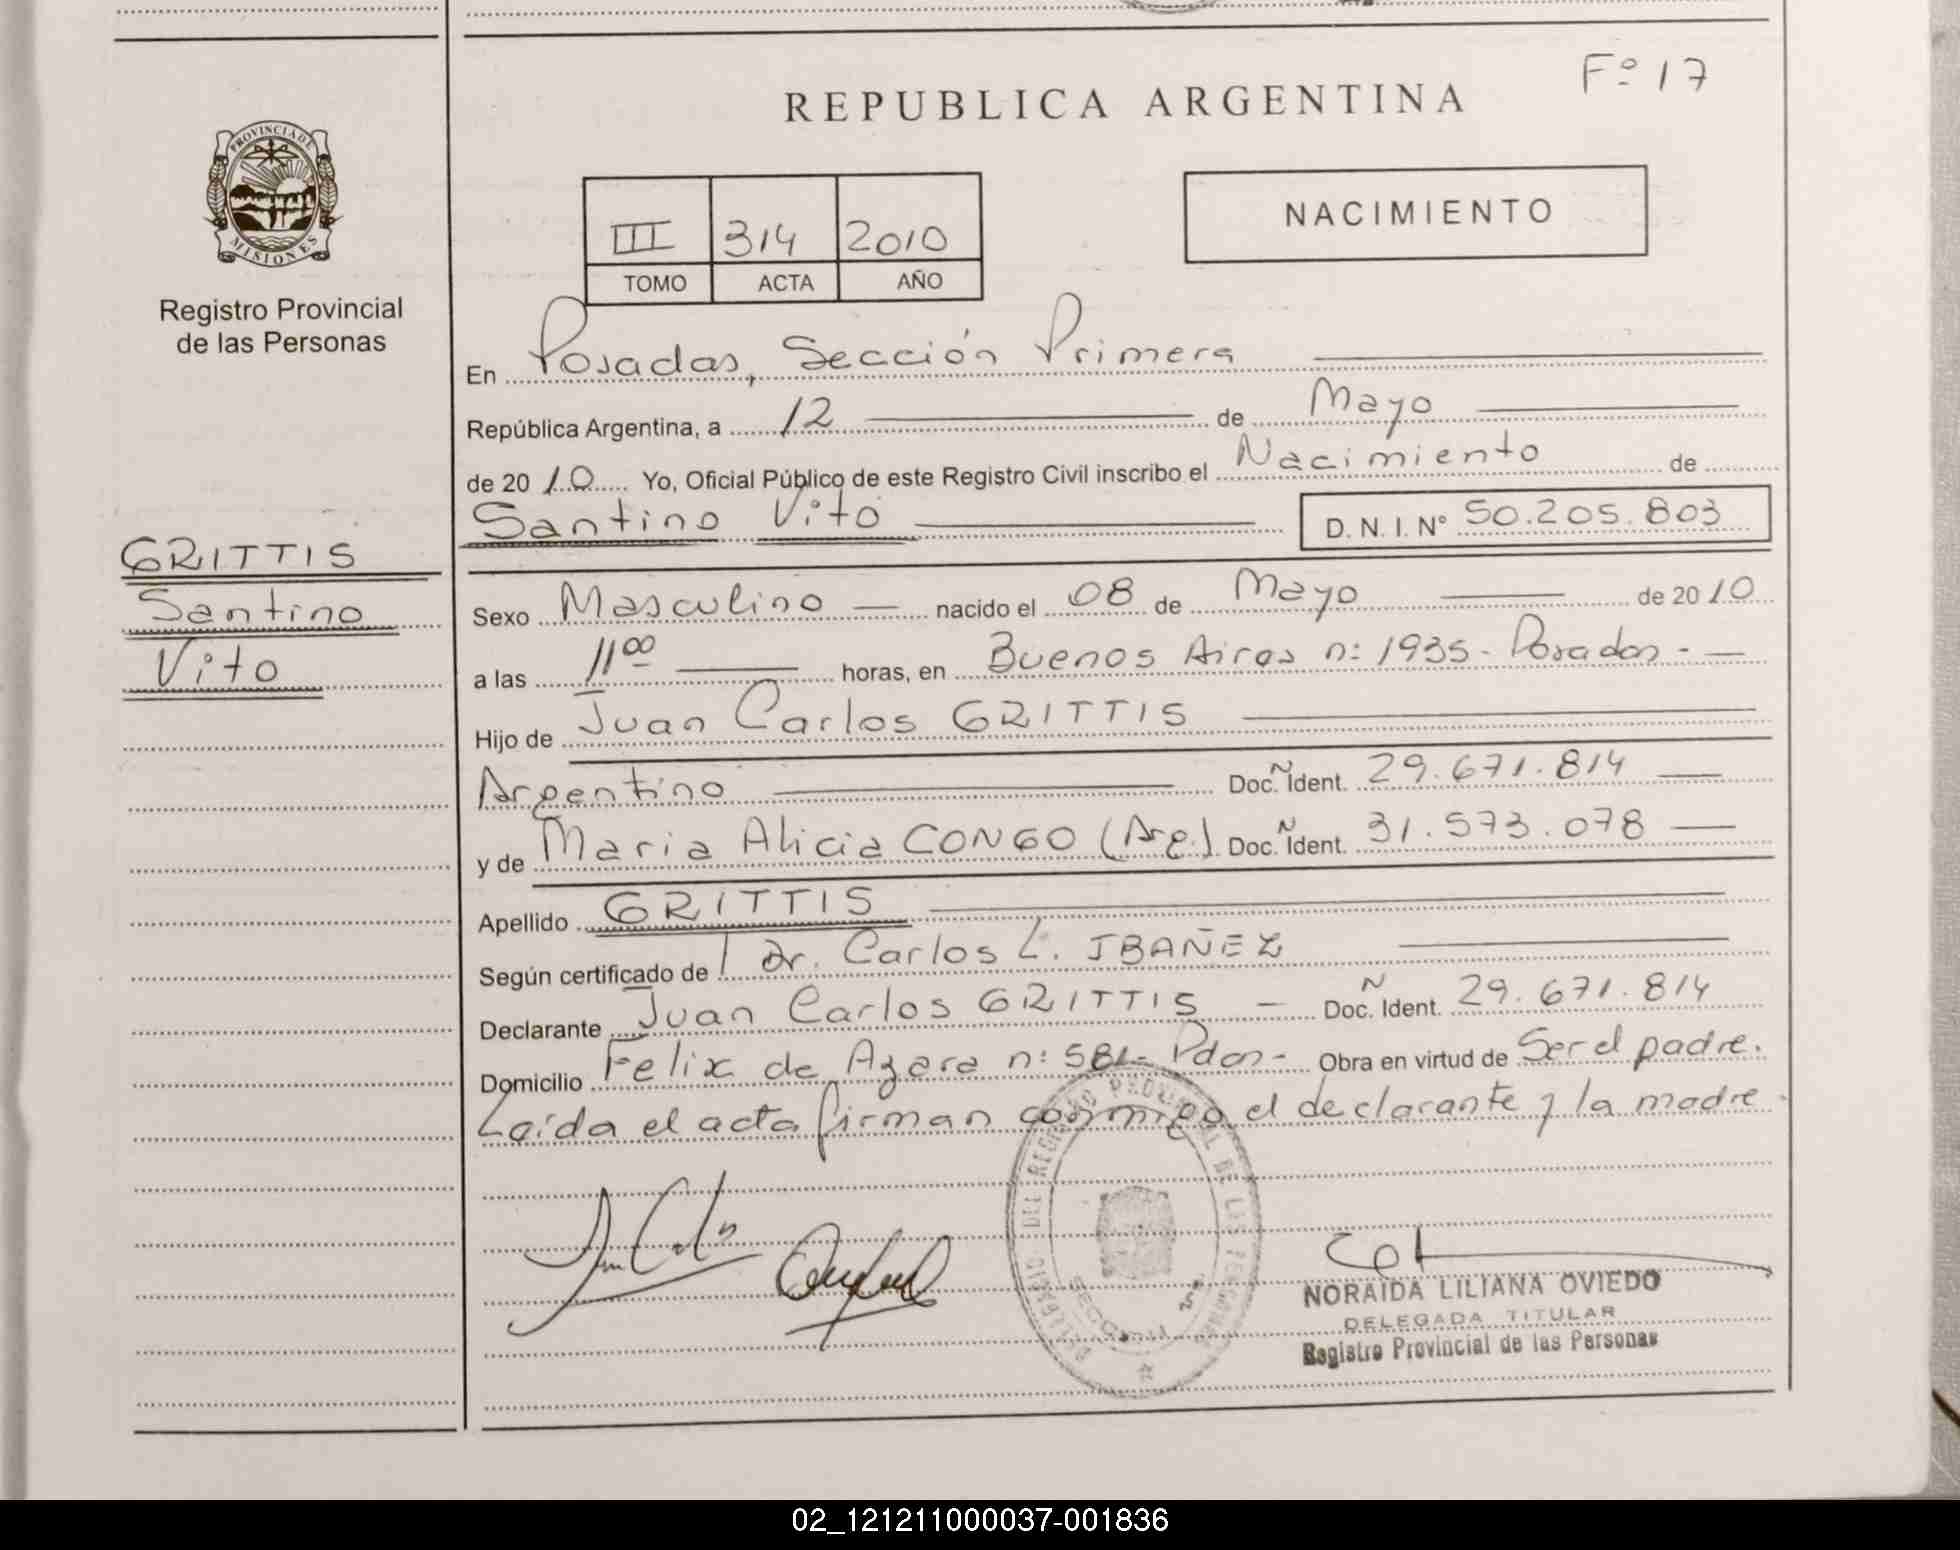 Fº 17
REPUBLICA ARGENTINA
PROVINCIA DE
MISIONES
Registro Provincial
de las Personas
III 314 2010
TOMO ACTA AÑO
NACIMIENTO
En Posadas, Sección Primera
República Argentina, a 12 de Mayo
de 2010 Yo, Oficial Público de este Registro Civil inscribo el Nacimiento de
Santino Vito D. N. I. Nº 50.205.803
GRITTIS
Santino
Vito
Sexo Masculino nacido el 08 de Mayo de 2010
a las 11 00 horas, en Buenos Aires n: 1935 - Posadas -
Hijo de Juan Carlos GRITTIS
Argentino Doc. N Ident. 29.671.814
y de Maria Alicia CONGO (Arg.) Doc. N Ident. 31.573.078
Apellido GRITTIS
Según certificado de Dr. Carlos L. IBAÑEZ
Declarante Juan Carlos GRITTIS - Doc. N Ident. 29.671.814
Domicilio Felix de Azara n: 581 - Pdas - Obra en virtud de Ser el padre.
Leída el acta firman conmigo el declarante y la madre.
NORAIDA LILIANA OVIEDO
DELEGADA TITULAR
Registro Provincial de las Personas
02_121211000037-001836